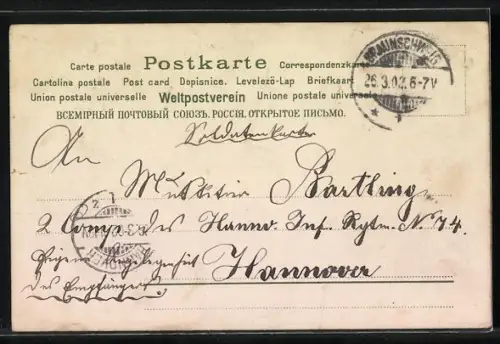 Carte postale Postkarte Correspondenzkarte
Cartolina postale Post card Dopisnice. Levelező-Lap Briefkaart
Union postale universelle Weltpostverein Unione postale universale
ВСЕМІРНЫЙ ПОЧТОВЫЙ СОЮЗЪ. РОССІЯ. ОТКРЫТОЕ ПИСЬМО.
BRAUNSCHWEIG
26.3.02. 6-7V
Soldatenkarte
An
Musketier Bartling
2 Comp. des Hanno. Inf. Rgtm. N. 74.
Eigene Angelegenheit Hannover
des Empfängers
HANNOVER